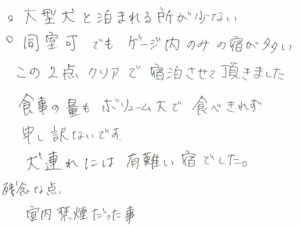 。大型犬と泊まれる所が少ない
。同室可でもゲージ内のみの宿が多い
この2点クリアで宿泊させて頂きました
食事の量もボリューム大で食べきれず
申し訳ないです。
犬連れには有難い宿でした。
残念な点、
室内禁煙だった事